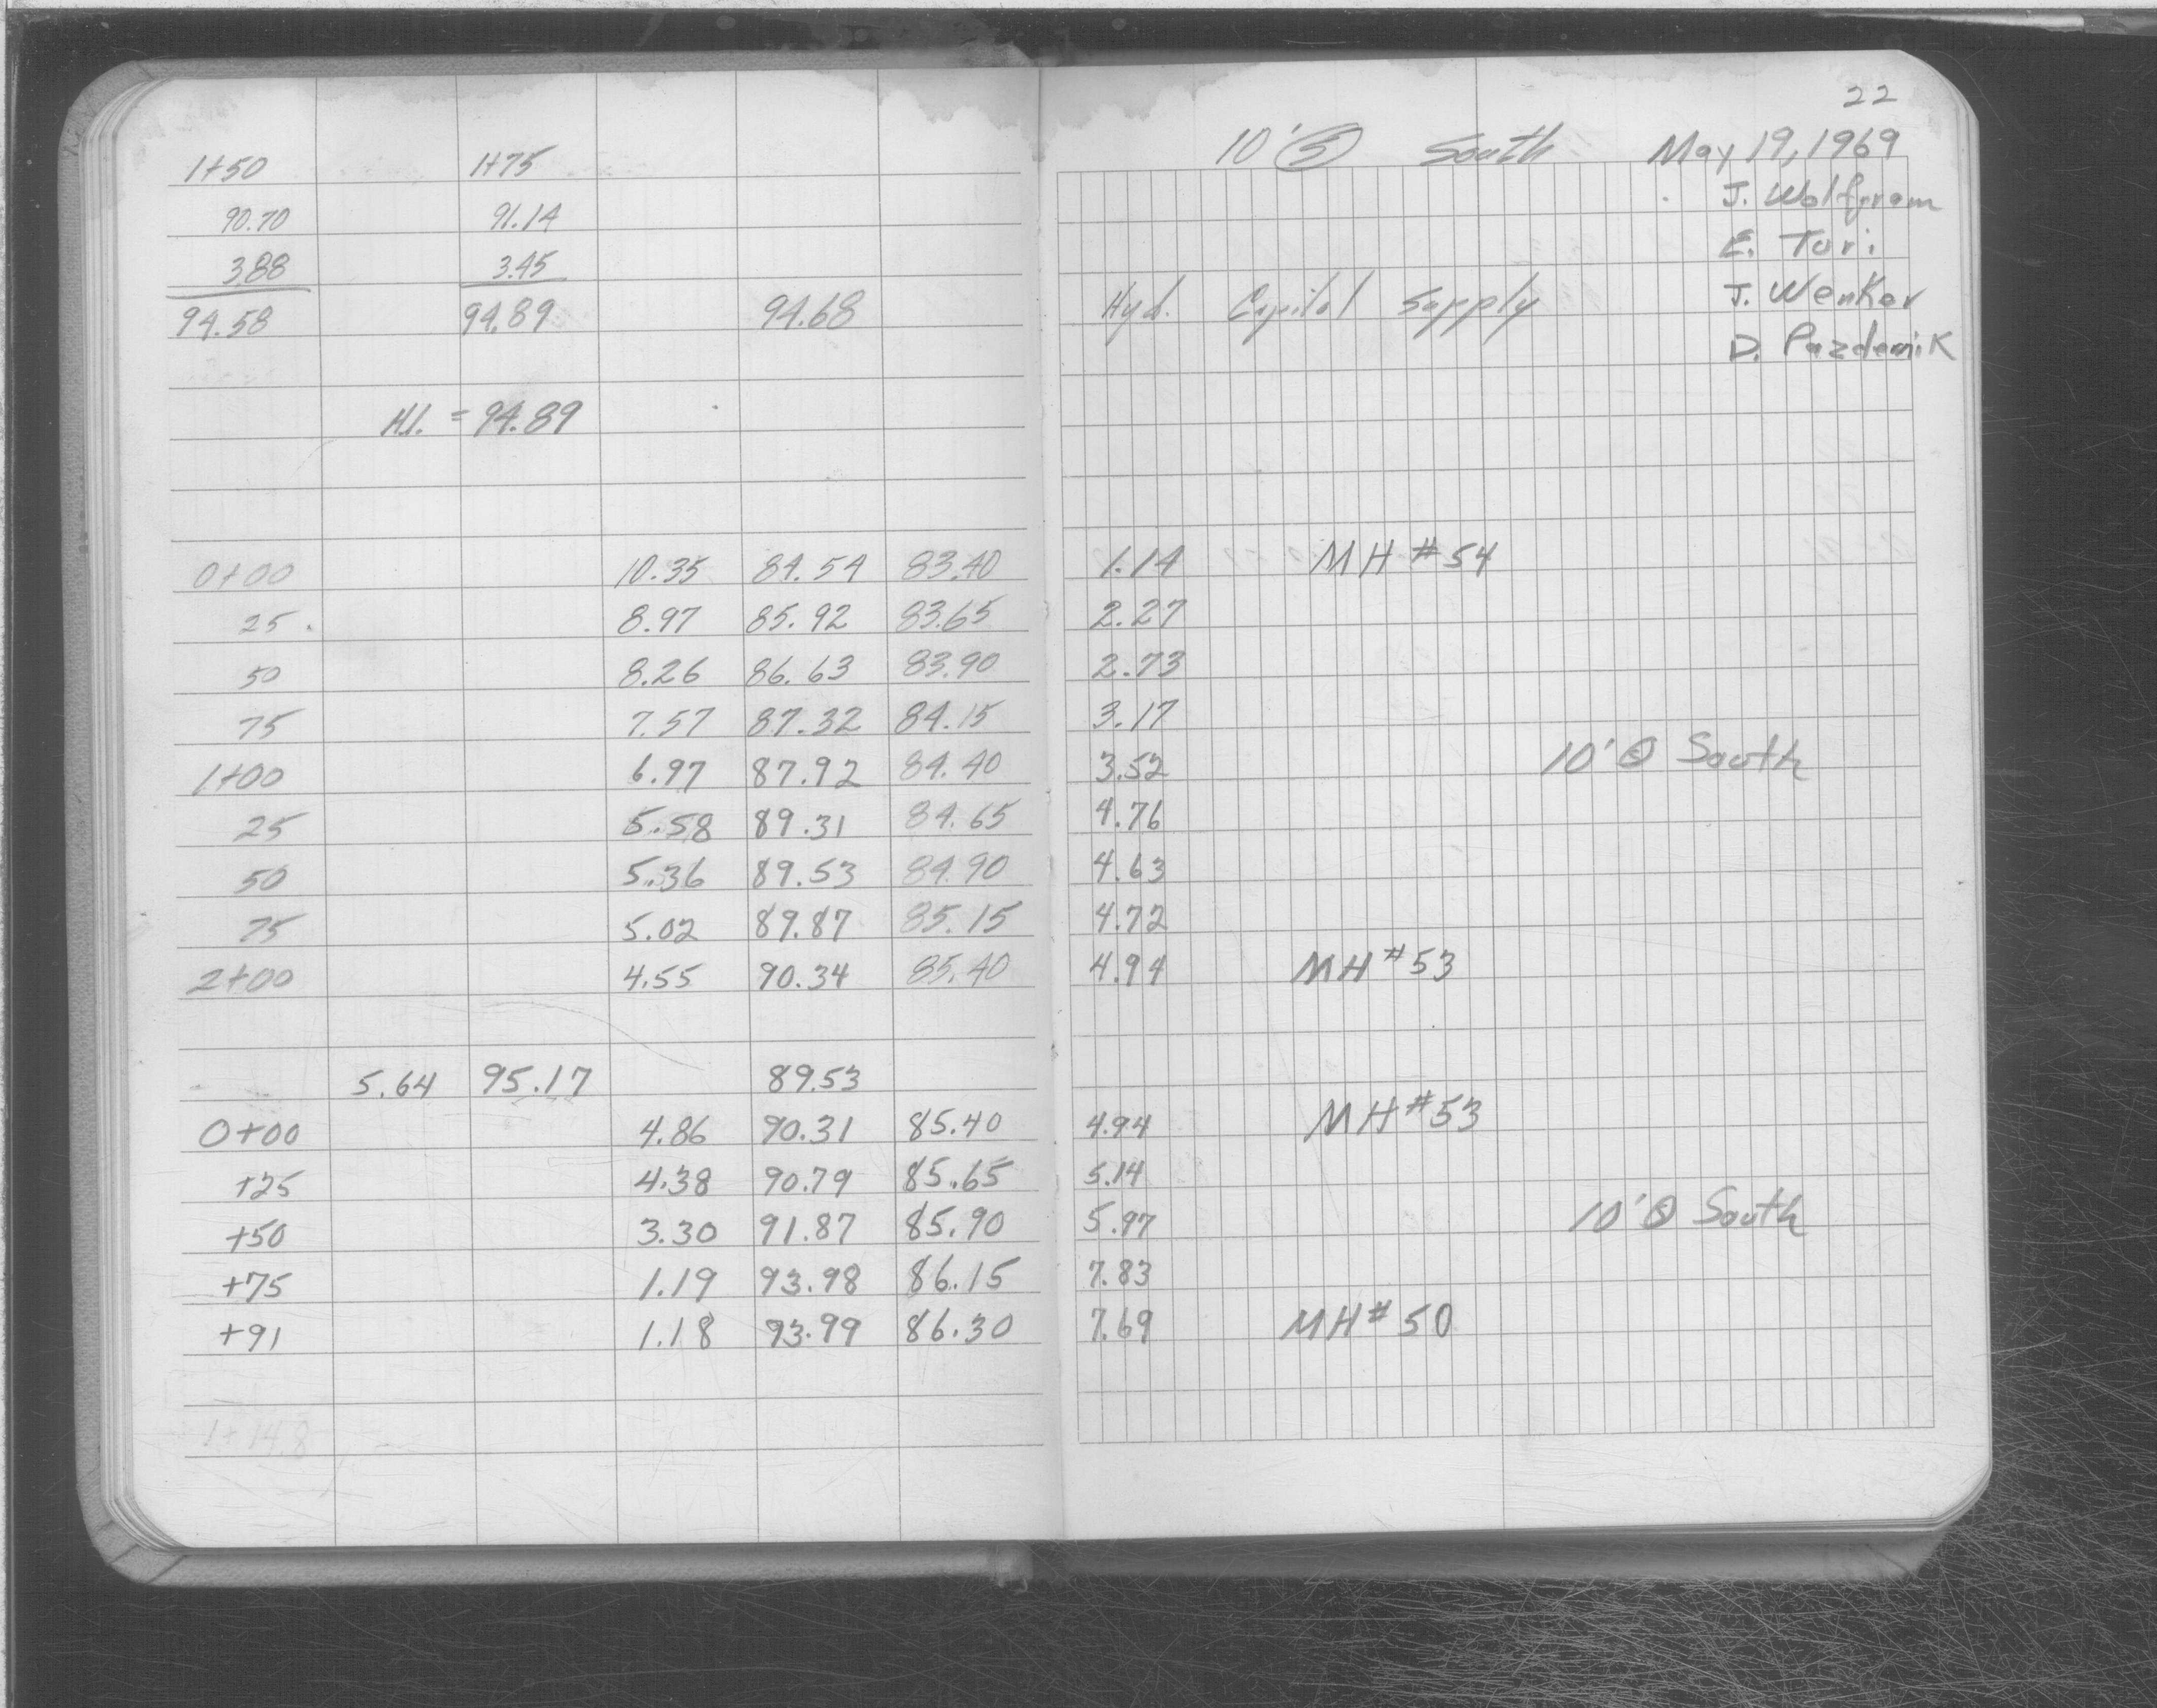 22
10' Ⓢ South May 19, 1969
1+50 1+75
J. Wolfgram
90.70 91.14
E. Tori
3.88 3.45
J. Wenker
94.58 94.89 94.68 Hyd. Capitol Supply
D. Pazdernik
H.I. = 94.89
0+00 10.35 84.54 83.40 1.14 MH #54
25 8.97 85.92 83.65 2.27
50 8.26 86.63 83.90 2.73
75 7.57 87.32 84.15 3.17
1+00 6.97 87.92 84.40 3.52 10' Ⓢ South
25 5.58 89.31 84.65 4.76
50 5.36 89.53 84.90 4.63
75 5.02 89.87 85.15 4.72
2+00 4.55 90.34 85.40 4.94 MH #53
5.64 95.17 89.53
0+00 4.86 90.31 85.40 4.94 MH #53
+25 4.38 90.79 85.65 5.14
+50 3.30 91.87 85.90 5.97 10' Ⓢ South
+75 1.19 93.98 86.15 7.83
+91 1.18 93.99 86.30 7.69 MH #50
1+14.8